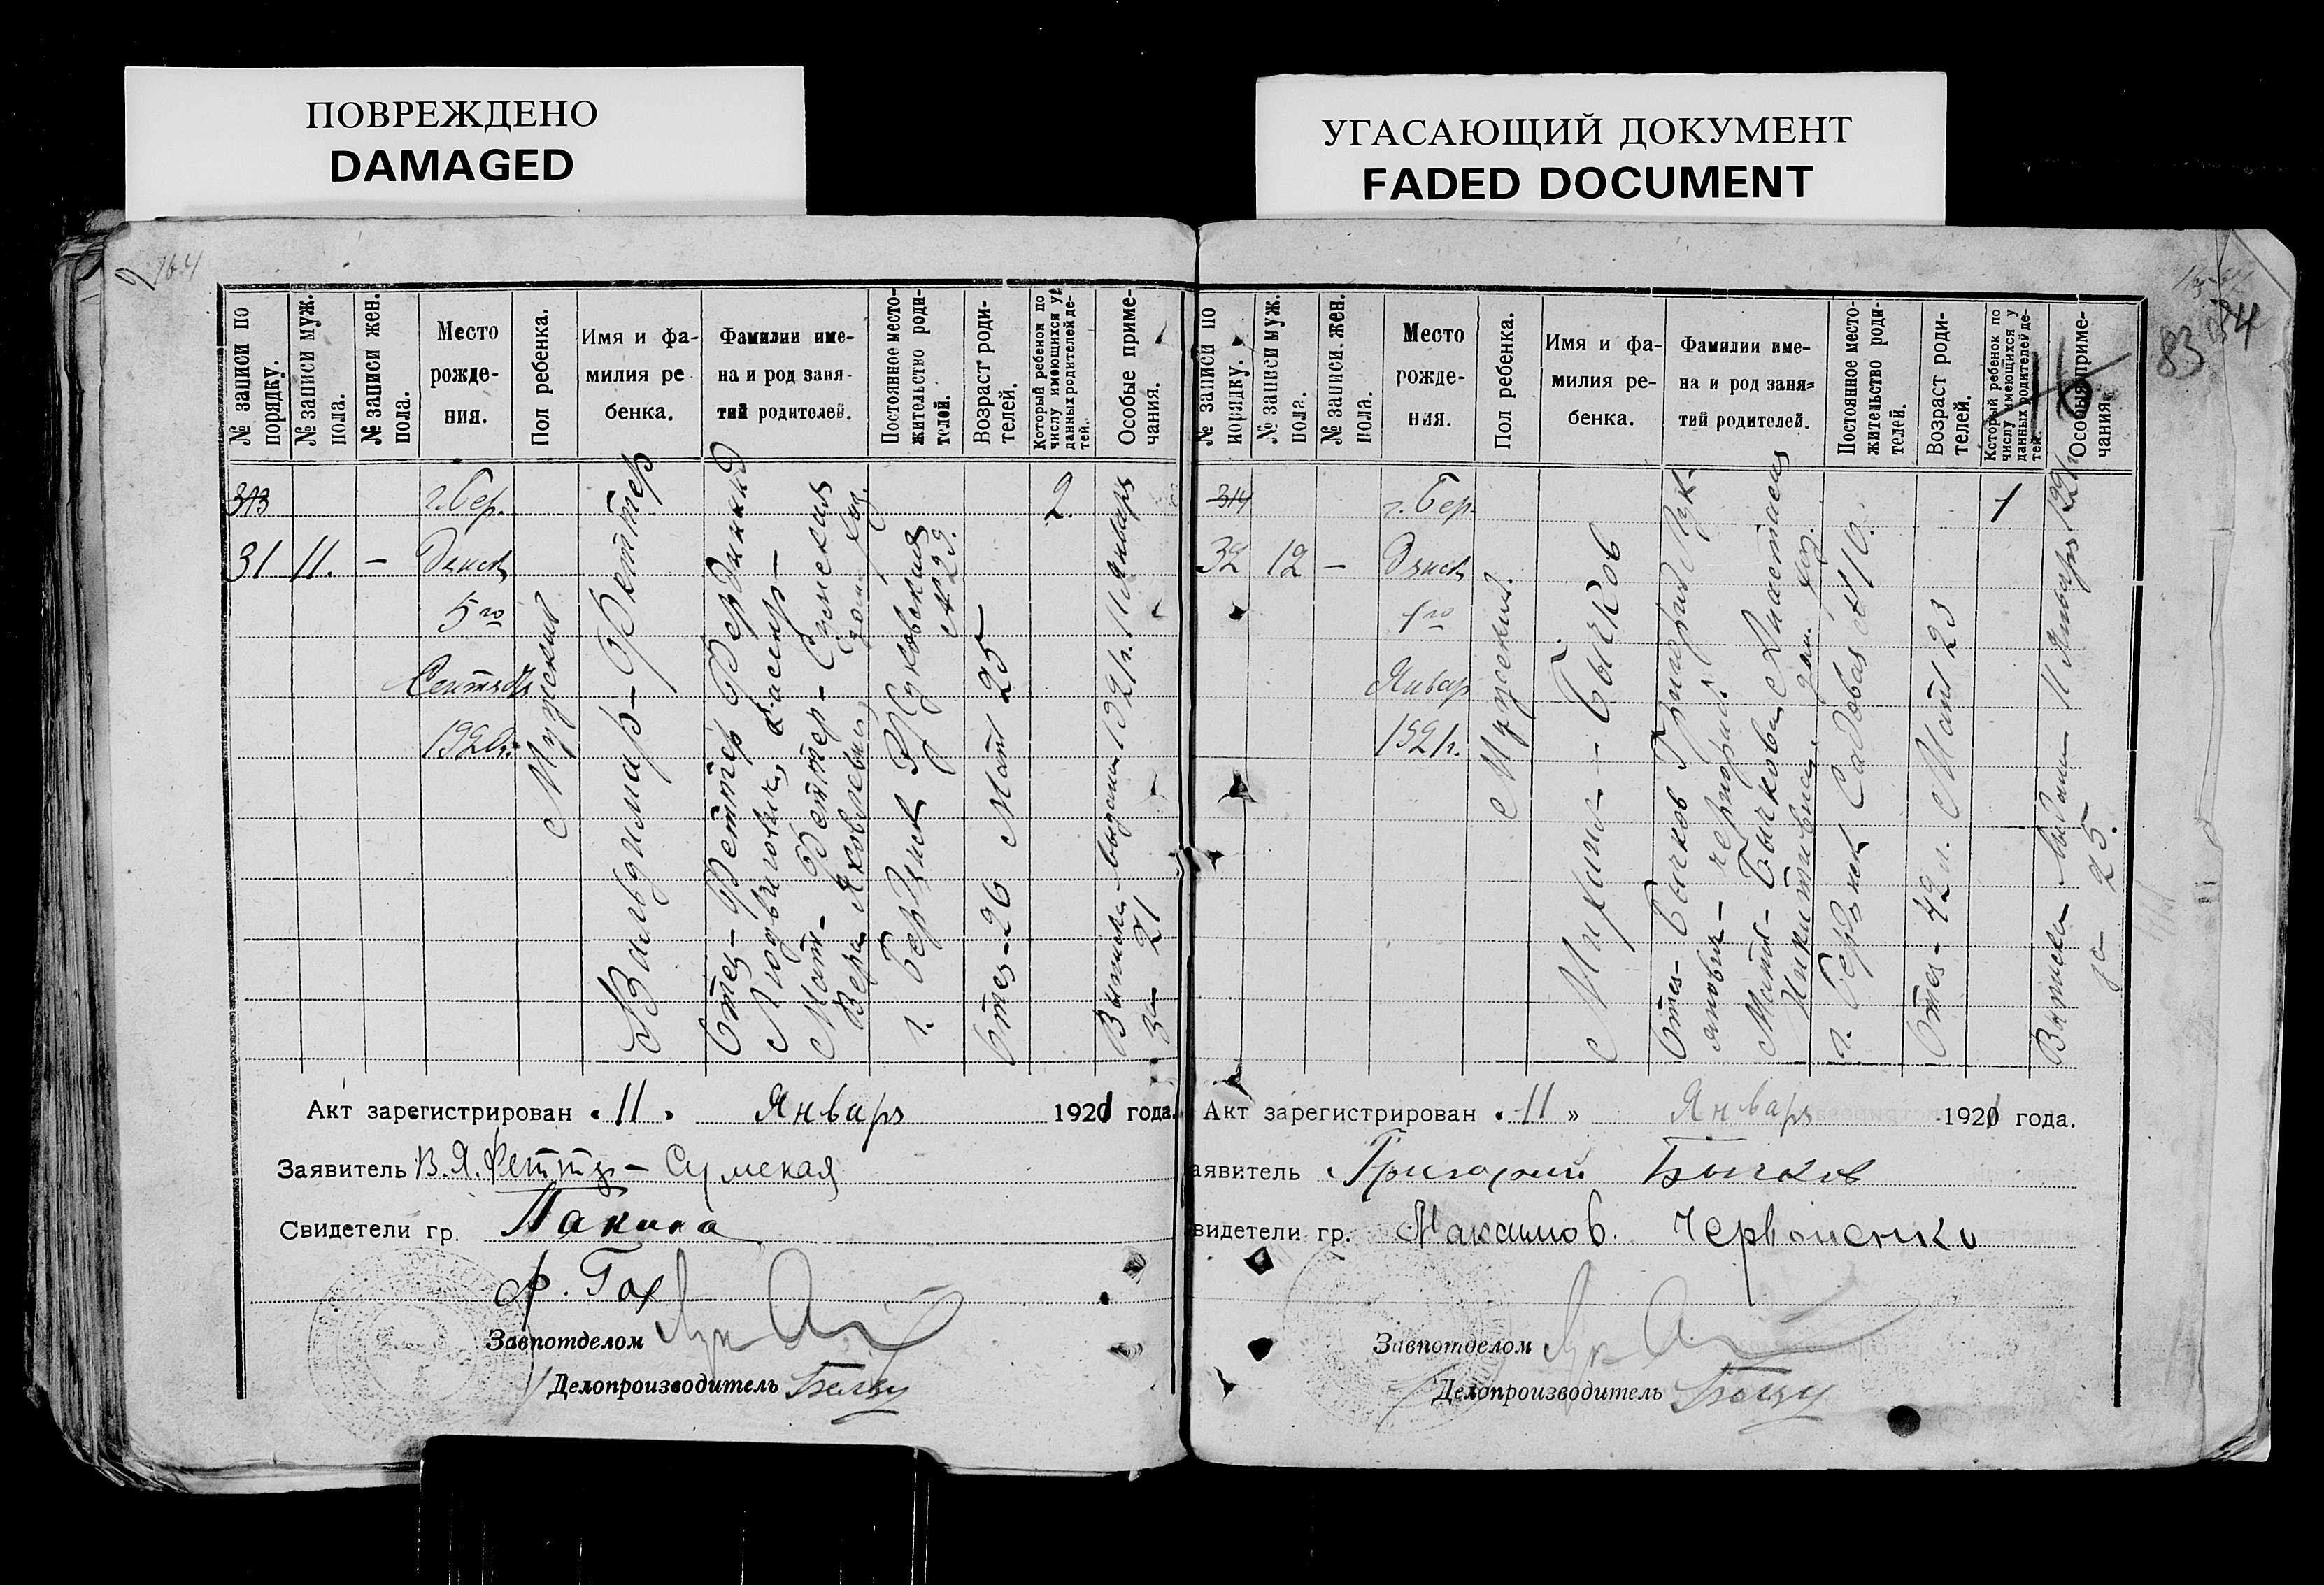 ПОВРЕЖДЕНО
DAMAGED
УГАСАЮЩИЙ ДОКУМЕНТ
FADED DOCUMENT
164
№ записи по порядку.
№ записи муж. пола.
№ записи жен. пола.
Место рожде-
ния.
Пол ребенка.
Имя и фа-
милия ре
бенка.
Фамилии име-
на и род заня-
тий родителей.
Постоянное место-
жительство роди-
телей.
Возраст роди-
телей.
Который ребенок по
числу имеющихся у
данных родителей де-
тей.
Особые приме-
чания.
313
31
11.
—
г. Бер-
дянск
5го
Сентября
1920г.
Мужской
Вальдимар - Феттер
Отец - Феттер Фердинанд
Людвигович,
Мать - Феттер - Сумская
Вера Яковлевна,
г. Бердянск
№ 29.
Отец - 26 Мать 25
2.
Выписка выдана 1921г. 11 Января
за 21
Акт зарегистрирован „11" Января 1921 года.
Заявитель В. Я. Феттер - Сумская
Свидетели гр. Папина
Ф. Гах
Завпотделом
Делопроизводитель
83
134
16
№ записи по порядку.
№ записи муж. пола.
№ записи жен. пола.
Место
рожде-
ния.
Пол ребенка.
Имя и фа-
милия ре-
бенка.
Фамилии име-
на и род заня-
тий родителей.
Постоянное место-
жительство роди-
телей.
Возраст роди-
телей.
Который ребенок по
числу имеющихся у
данных родителей де-
тей.
Особые приме-
чания.
314
32
12
—
г. Бер-
дянск
1го
Январ
1921г.
Мужской.
Михаил - Бычков
Отец - Бычков Григорий Лук-
янович -
Мать - Бычкова Анастасия
Никитична,
г. Бердянск Садовая №10.
Отец - 42 л. Мать 23
1
Выписка выдана 11 Января 1921г.
за 25.
Акт зарегистрирован „11 " Января 1921 года.
аявитель Григорий Бычков
видетели гр. Максимов. Червоненко
Завпотделом
Делопроизводитель